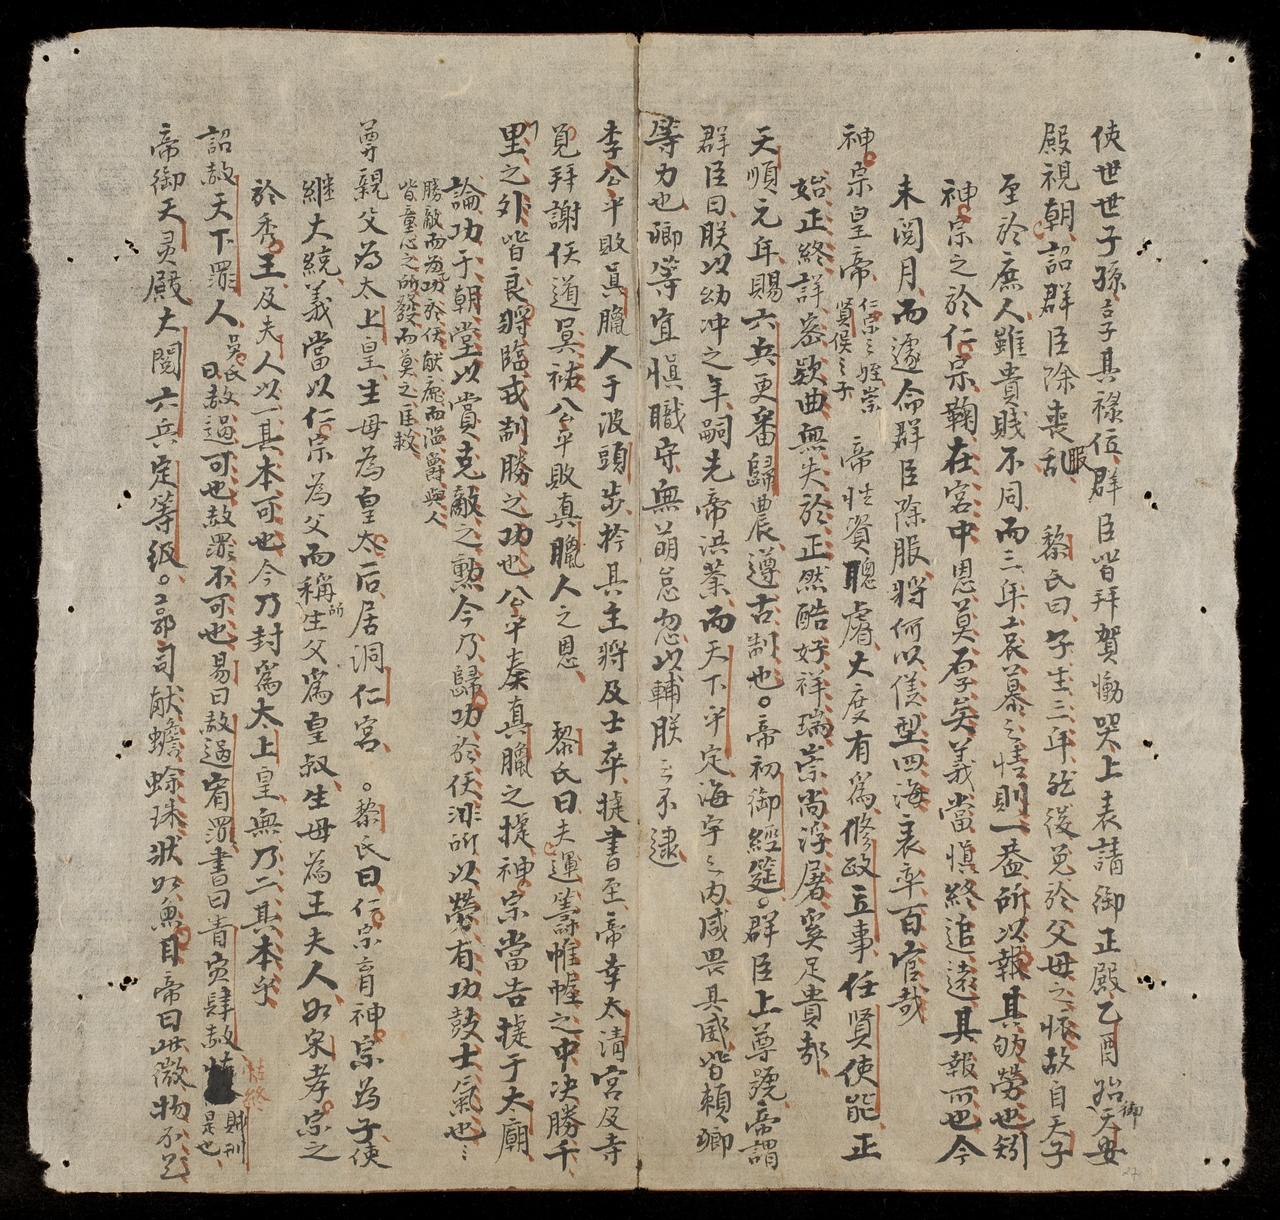 使世世子孫言子其祿位群臣皆拜賀慟哭上表請御正殿乙酉始御天安
殿視朝詔群臣除喪服 黎氏曰子生三年然後免於父母之懷故自天子
至於庶人雖貴賤不同而三年哀慕之情則一蓋所以報其劬勞也矧
神宗之於仁宗鞠在宮中恩莫厚矣義當慎終追遠其報而也今
未閱月而遽命群臣除服將何以儀型四海表率百官哉
神宗皇帝 仁宗之姪崇賢侯之子 帝性資聰睿大度有為修政立事任賢使能正
始正終詳密欵曲無失於正然酷好祥瑞崇尚浮屠奚足貴哉
天順元年賜六兵更番歸農遵古制也。帝初御經筵。群臣上尊號帝謂
群臣曰朕以幼冲之年嗣先帝洪業而天下平定海宇之内咸畏其威皆賴卿
等力也卿等宜慎職守無萌怠忽以輔朕之不逮
李公平敗眞臘人于波頭步擒其主將及士卒捷書至帝幸太清宮及寺
覓拜謝佛道冥祐公平敗真臘人之恩 黎氏曰夫運籌帷幄之中决勝千
里之外皆良將臨戎制勝之功也公平奏真臘之捷神宗當告捷于太廟
論功于朝堂以賞克敵之勲今乃歸功於佛非所以勞有功鼓士氣也
勝敵而為功於佛献鹿而濫爵與人
皆童心之所發而莫之匡救
尊親父為太上皇生母為皇太后居洞仁宮 。黎氏曰仁宗育神宗為子使
繼大統義當以仁宗為父而稱所生父為皇叔生母為王夫人如宋孝宗之
於秀王及夫人以一其本可也今乃封為太上皇無乃二其本乎
詔赦天下罪人 吳氏曰赦過可也赦罪不可也易曰赦過宥罪書曰眚灾肆赦怙終賊刑是也
帝御天灵殿大閱六兵定等級。郭司献蟾蜍珠狀如魚目帝曰此微物不足